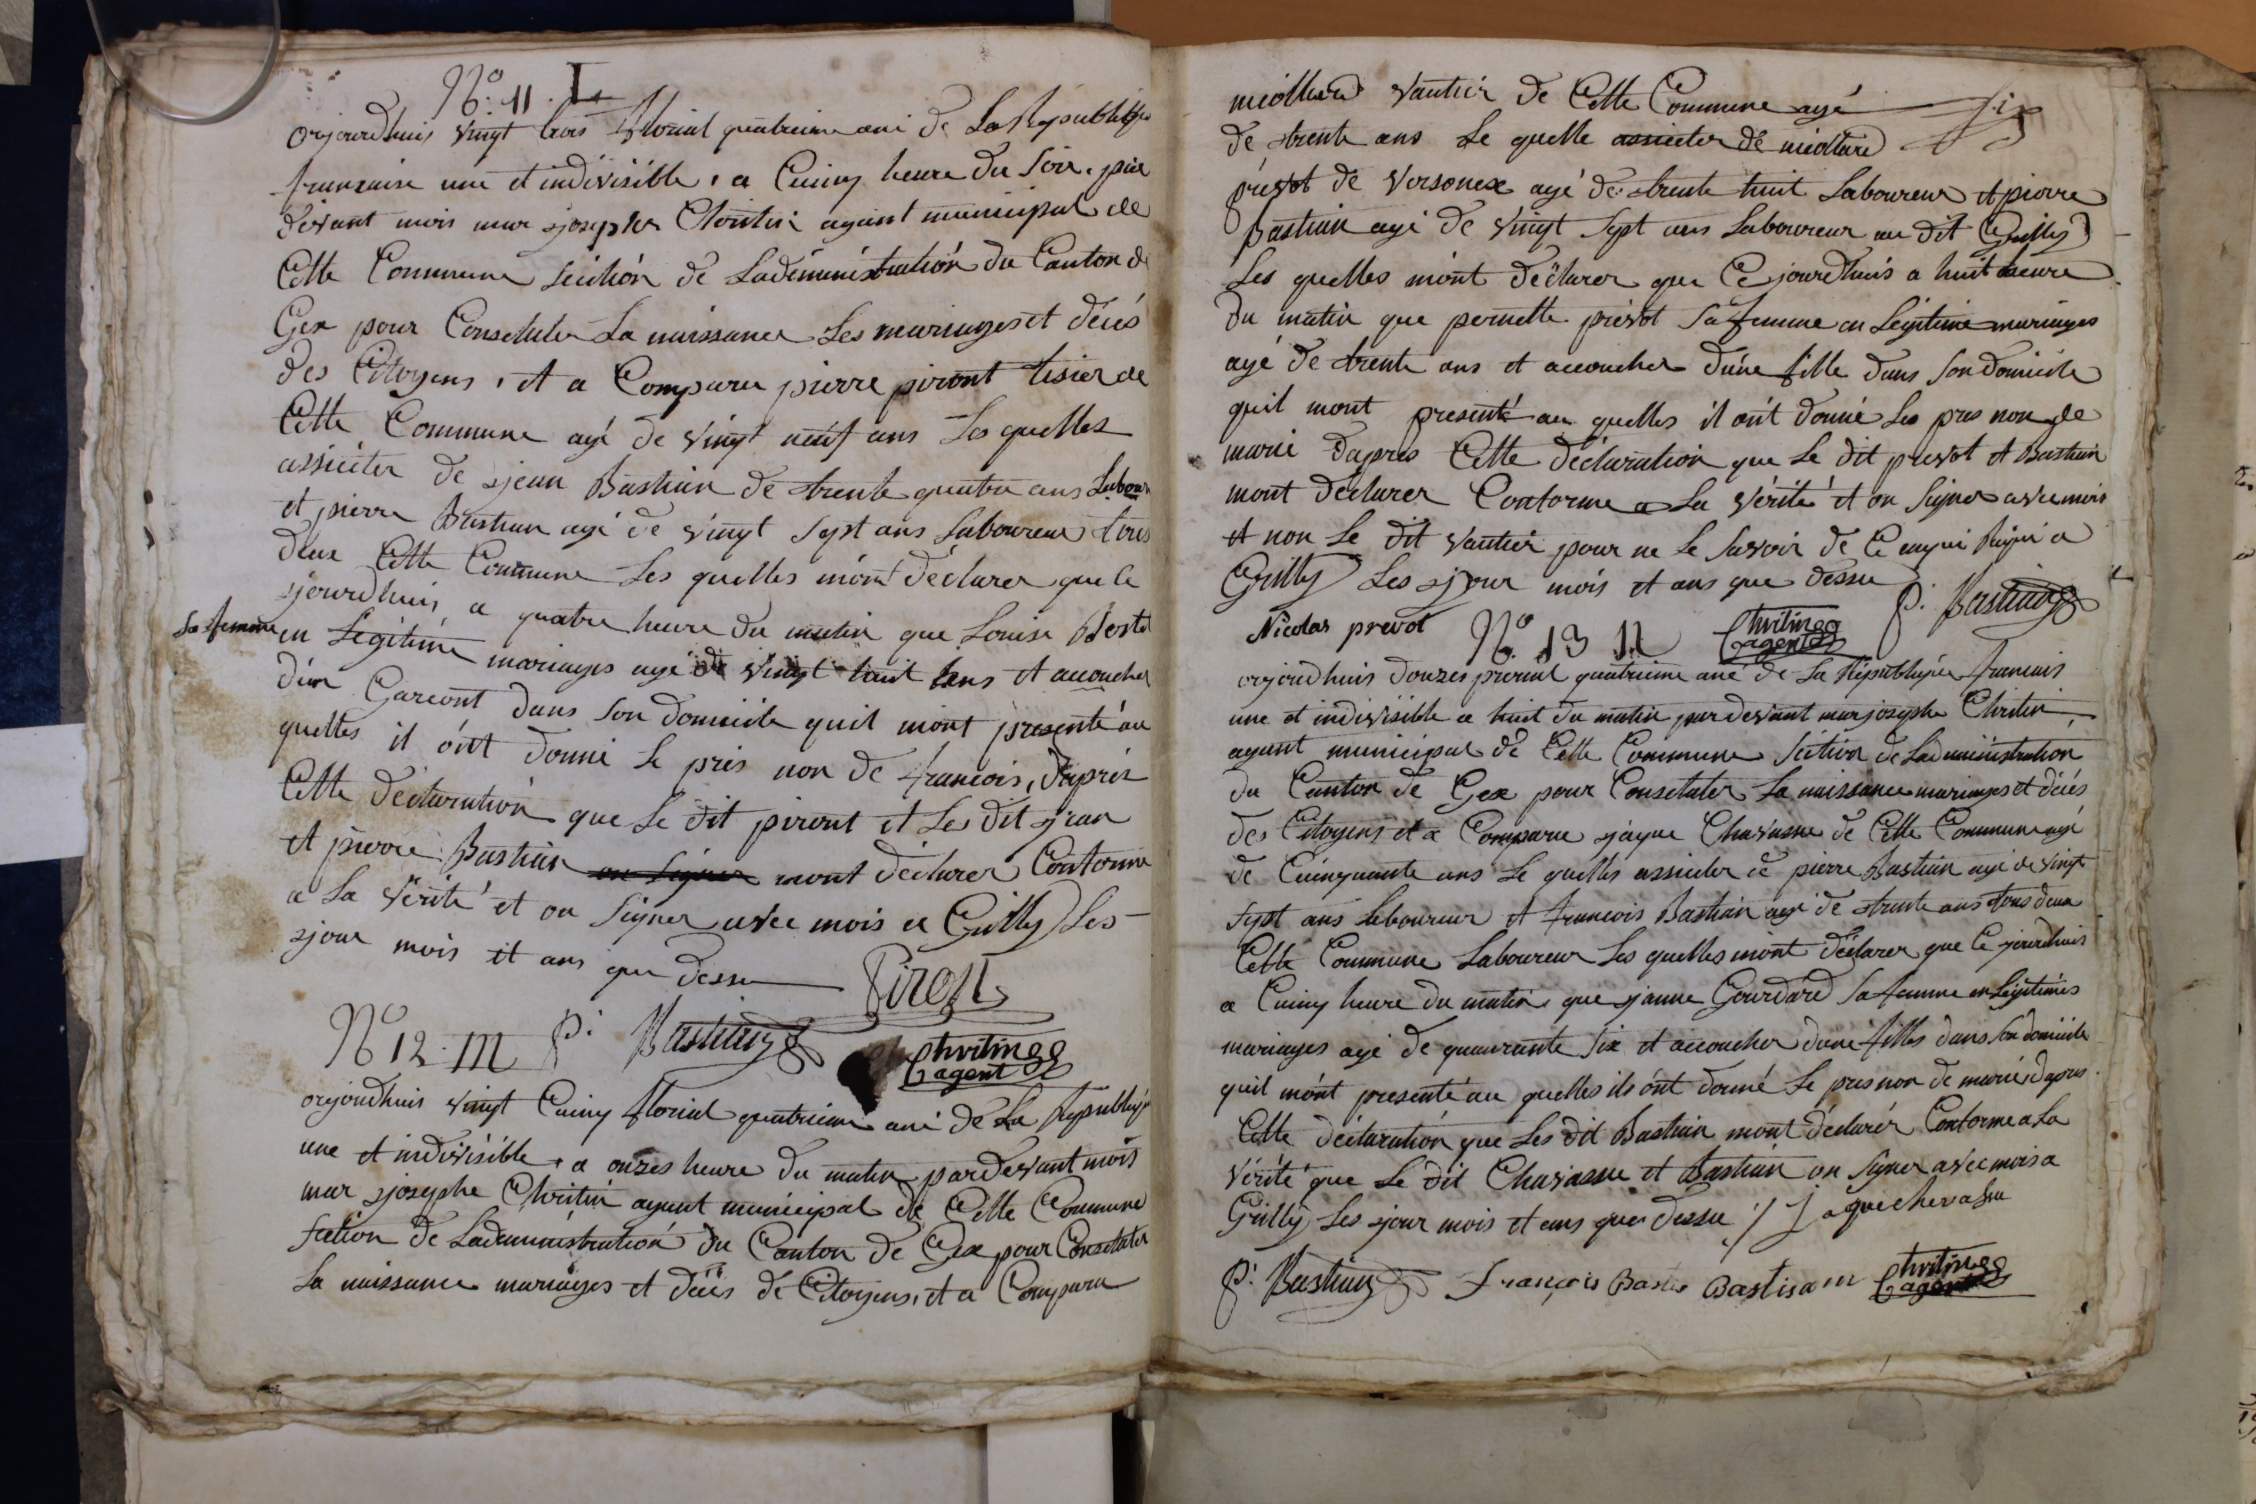 N° 11 L
orjourdhuis vingt trois florial quatrieme ané de La Republiq
francaise une et indivisible, a Cuinq heure du Soir. par
devant mois mar sjosephe Christin agant municipal de
Cette Commune Section de Ladeministration du Canton de
Gex pour Consetater La naissance Les mariages et décés
des Citoyens, et a Comparu pierre piront tisier de
Cette Commune agé de vingt neuf ans Les quelles
assister de sjean Bastian de trente quatre ans Labour
et pierre Bastian agé de vingt sept ans Laboureur tous
deux Cette Commune Les quelles mónt déclarer que Ce
sjourdhuis a quatre heure du matin que Louise
Sa femme en Legitime mariages agé de vingt huit ans et accoucher
dún Garcont dans son domicile quil mónt presenté au
quelles il ónt donné Le pres non de francois, daprés
Cette déclaration que Le dit piront et Les dit sjean
et pierre Bastian on signer mont déclarer Conforme
a La vérité et on signer avec mois a Grilly Les
sjour mois et ans que dessu
Piront
N° 12. M P. Bastian
Chritin agent
orjourdhuis vingt Cuinq florial quatrieme ané de La Republiq
une et indivisible, a onzes heure du matin pardevant mois
mar sjosephe Christin agant municipal de Cette Commune
section de Ladeministration du Canton de Gex pour Consetater
La naissance mariages et décés de Citoyens, et a Comparu
vautier de Cette Commune agé
de trente ans Le quelle assister de
prevot de Versonex agé de trente huit Laboureur et pierre
Bastian agé de vingt sept ans Laboureur au dit Grilly
Les quelles mónt déclarer que Ce jourdhuis a huit heure
du matin que pernette prevot Sa femme en Legitime mariages
agé de trente ans et accoucher dúne fille dans son domicile
quil mont presenté au quelles il ónt donné Les pres non de
marie daprés Cette déclaration que Le dit prevot et Bastian
mont déclarer Conforme a La vérité et on signer avec mois
et non Le dit vautier pour ne Le savoir de Ce enqui Riqui a
Grilly Les sjour mois et ans que dessu
P. Bastian
Nicolas prevot N° 13 N Chritin agent
orjourdhuis douzes prerial quatrieme ané de La Republique francais
une et indivisible a huit du matin par devant mar josephe Christin
agant municipal de Cette Commune Section de Ladeministration
du Canton de Gex pour Consetater La naissance mariages et décés
des Citoyens et a Comparu sjaque Chavasse de Cette Commune agé
de Cuinquante ans Le quelles assister de pierre Bastian agé de vingt
sept ans Laboureur et francois Bastian agé de trente ans tous deux
Cette Commune Laboureur Les quelles mónt déclarer que Ce jourdhuis
a Cuinq heure du matin que sjanne Gourdard Sa femme en Legitimes
mariages agé de quaurante six et accoucher dune filles dans son domicile
quil mónt presenté au quelles ils ónt donné Le pres non de marie, dapres
Cette déclaration que Les dit Bastian mont déclarér Conforme a La
vérité que Le dit Chavasse et Bastian on signer avec mois a
Grilly Les sjour mois et ans que dessu // Jaque chevasu
P. Bastian francois Bastis Bastisam Chritin agent